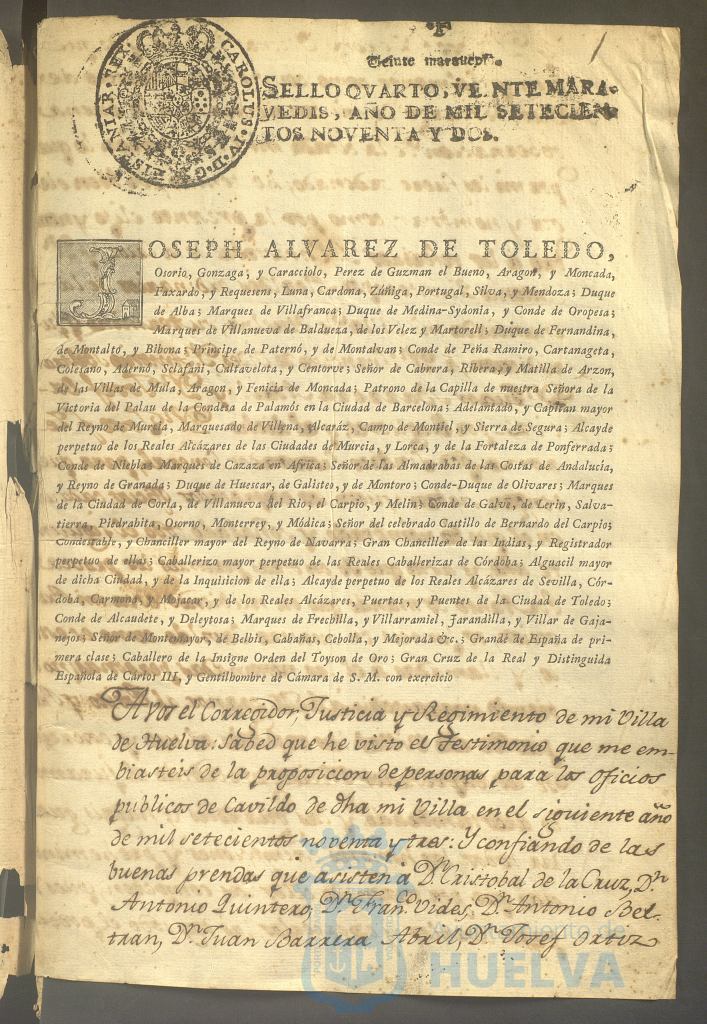 CAROLUS IV D. G. HISPANIAR. REX
SELLO QVARTO, VEINTE MARA-
VEDIS, AÑO DE MIL SETECIEN-
TOS NOVENTA Y DOS.
JOSEPH ALVAREZ DE TOLEDO,
Osorio, Gonzaga, y Caracciolo, Perez de Guzman el Bueno, Aragon, y Moncada,
Faxardo, y Requesens, Luna, Cardona, Zúñiga, Portugal, Silva, y Mendoza; Duque
de Alba; Marques de Villafranca; Duque de Medina-Sydonia, y Conde de Oropesa;
Marques de Villanueva de Baldueza, de los Velez y Martorell; Duque de Fernandina,
de Montalto, y Bibona; Principe de Paternó, y de Montalvan; Conde de Peña Ramiro, Cartanageta,
Colesano, Adernó, Sclafani, Caltavelota, y Centorve; Señor de Cabrera, Ribera, y Matilla de Arzon,
de las Villas de Mula, Aragon, y Fenicia de Moncada; Patrono de la Capilla de nuestra Señora de la
Victoria del Palau de la Condesa de Palamós en la Ciudad de Barcelona; Adelantado, y Capitan mayor
del Reyno de Murcia, Marquesado de Villena, Alcaráz, Campo de Montiel, y Sierra de Segura; Alcayde
perpetuo de los Reales Alcázares de las Ciudades de Murcia, y Lorca, y de la Fortaleza de Ponferrada;
Conde de Niebla; Marques de Cazaza en Africa; Señor de las Almadrabas de las Costas de Andalucia,
y Reyno de Granada; Duque de Huescar, de Galisteo, y de Montoro; Conde-Duque de Olivares; Marques
de la Ciudad de Coria, de Villanueva del Rio, el Carpio, y Melin; Conde de Galve, de Lerin, Salva-
tierra, Piedrabita, Osorno, Monterrey, y Módica; Señor del celebrado Castillo de Bernardo del Carpio;
Condestable, y Chanciller mayor del Reyno de Navarra; Gran Chanciller de las Indias, y Registrador
perpetuo de ellas; Caballerizo mayor perpetuo de las Reales Caballerizas de Córdoba; Alguacil mayor
de dicha Ciudad, y de la Inquisicion de ella; Alcayde perpetuo de los Reales Alcázares de Sevilla, Cór-
doba, Carmona, y Mojacar, y de los Reales Alcázares, Puertas, y Puentes de la Ciudad de Toledo;
Conde de Alcaudete, y Deleytosa; Marques de Frechilla, y Villarramiel, Jarandilla, y Villar de Gaja-
nejos; Señor de Montemayor, de Belbis, Cabañas, Cebolla, y Mejorada &c.; Grande de España de pri-
mera clase; Caballero de la Insigne Orden del Toyson de Oro; Gran Cruz de la Real y Distinguida
Española de Cárlos III, y Gentilhombre de Cámara de S. M. con exercicio
A vos el Corregidor, Justicia y Regimiento de mi Villa
de Huelva: Sabed que he visto el testimonio que me em-
biasteis de la proposicion de personas para los oficios
publicos de Cavildo de dha mi Villa en el siguiente año
de mil setecientos noventa y tres: Y confiando de las
buenas prendas que asisten á Dn. Cristobal de la Cruz, Dn.
Antonio Quintero, Dn. Franco. Vides, Dn. Antonio Bel-
tran, Dn. Juan Barrera Abril, Dn. Josef Ortiz
Ayuntamiento de
HUELVA